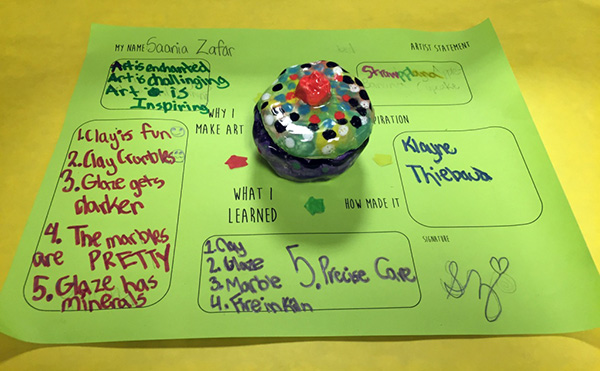 MY NAME Saania Zafar
ARTIST STATEMENT
Art is enchanted
Art is challenging
Art is
Inspiring
WHY I
MAKE ART
PIRATION
1. Clay is fun
2. Clay Crambles
3. Glaze gets
darker
4. The marbles
are PRETTY
5. Glaze has
minerals
Klayre
Thiebaua
WHAT I
LEARNED
HOW MADE IT
1. Clay
2. Glaze
3. Marble
4. Fire in kiln
5. Precise Care
SIGNATURE